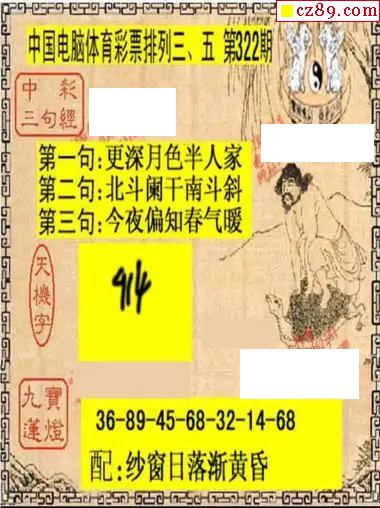 cz89.com
中国电脑体育彩票排列三、五 第322期
中彩
三句經
第一句:更深月色半人家
第二句:北斗阑干南斗斜
第三句:今夜偏知春气暖
天機字
914
九寶
蓮燈
36-89-45-68-32-14-68
配:纱窗日落渐黄昏